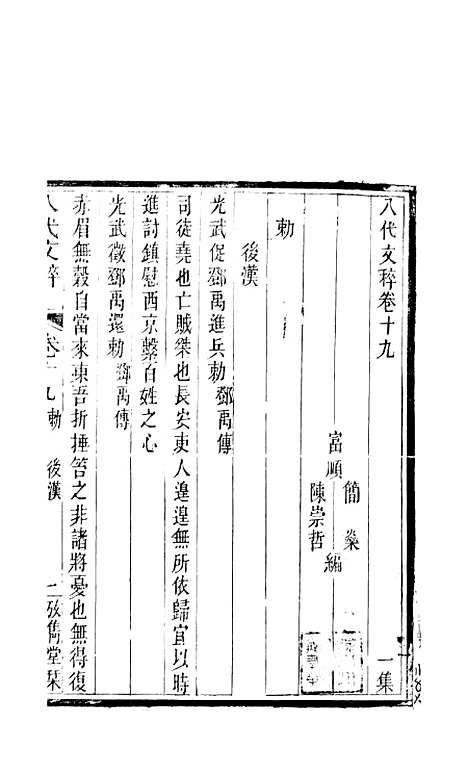 八代文粹卷十九　一集
富順　簡燊
陳崇哲　編
勅
後漢
光武促鄧禹進兵勅　鄧禹傳
司徒堯也亡賊桀也長安吏人遑遑無所依歸宜以時
進討鎮慰西京繫百姓之心
光武徵鄧禹還勅　鄧禹傳
赤眉無穀自當來東吾折捶笞之非諸將憂也無得復
八代文粹　卷十九　勅　後漢　一　攷雋堂栞